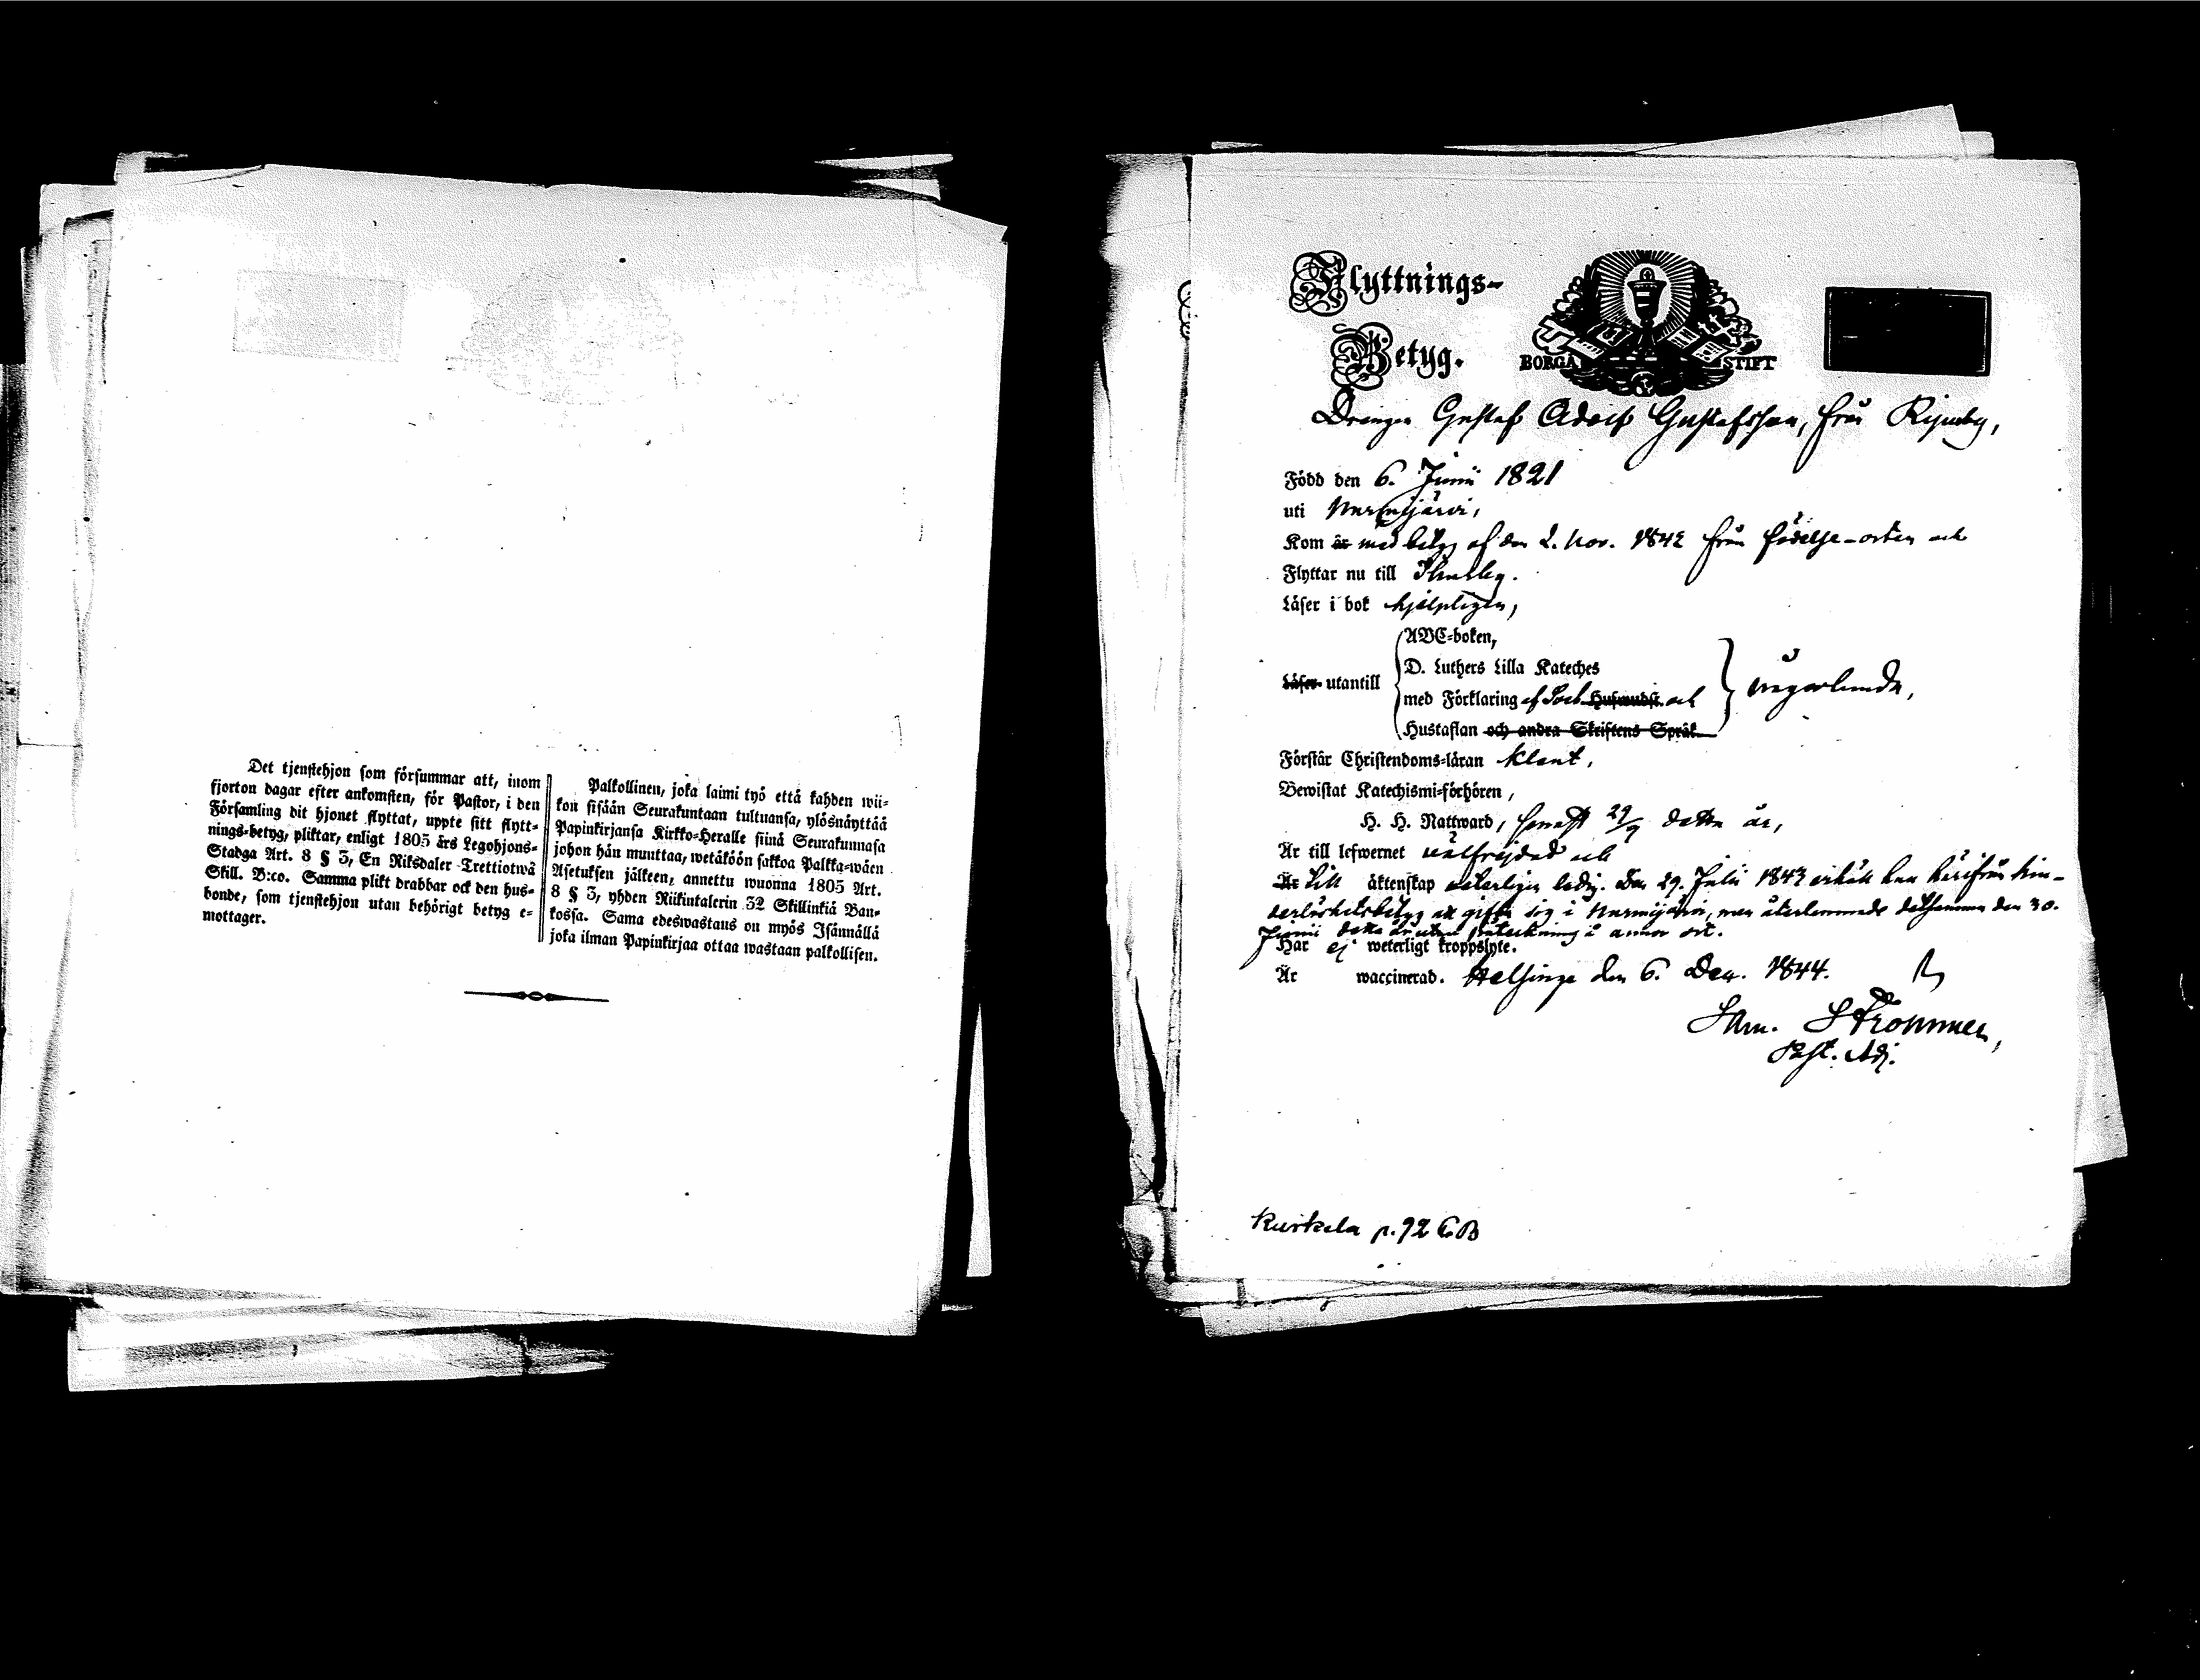 Det tjenstehjon som försummar att, inom
fjorton dagar efter ankomsten, för Pastor, i den
Församling dit hjonet flyttat, uppte sitt flytt-
nings-betyg, pliktar, enligt 1805 års Legohjons-
Stadga Art. 8 § 3, En Riksdaler Trettiotwå
Skill. B:co. Samma plikt drabbar ock den hus-
bonde, som tjenstehjon utan behörigt betyg e-
mottager.
Palkollinen, joka laimi työ että kahden wii-
kon sisään Seurakuntaan tultuansa, ylösnäyttää
Papinkirjansa Kirkko-Heralle siinä Seurakunnasa
johon hän muuttaa, wetäköön sakkoa Palkka-wäen
Asetuksen jälkeen, annettu wuonna 1805 Art.
8 § 3, yhden Riikintalerin 32 Skillinkiä Ban-
kossa. Sama edeswastaus on myös Isännällä
joka ilman Papinkirjaa ottaa wastaan palkollisen.
Flyttnings-
Betyg.
BORGÅ STIFT
Drengen Gustaf Adolf Gustafsson, från
Född den 6. Junii 1821
uti Nurmijärvi,
Kom är med betyg af den 2. Nov. 1842 från födelse-orten och
Flyttar nu till Thusby.
Läser i bok hjelpligen,
ABC-boken,
D. Luthers Lilla Kateches
Läser utantill
med Förklaring af och
Hustaflan och andra Skriftens Språk
någorlunda,
Förstår Christendoms-läran klent,
Bewistat Katechismi-förhören,
H. H. Nattward, senast 29/9 detta år,
Är till lefwernet välfrejdad och
Är till äktenskap veterligen ledig. Den 29. Julii 1843 erhöll han härifrån hin-
derlöshetsbetyg att gifta sig i Nurmijärvi, men återlemnade detsamma den 30.
Junii detta år utan påteckning å annor ort.
Har ej weterligt kroppslyte.
Är waccinerad. Helsinge den 6. Dec. 1844.
Sam. Strömmer,
Past. Adj.
Kurkela p. 92 C.B